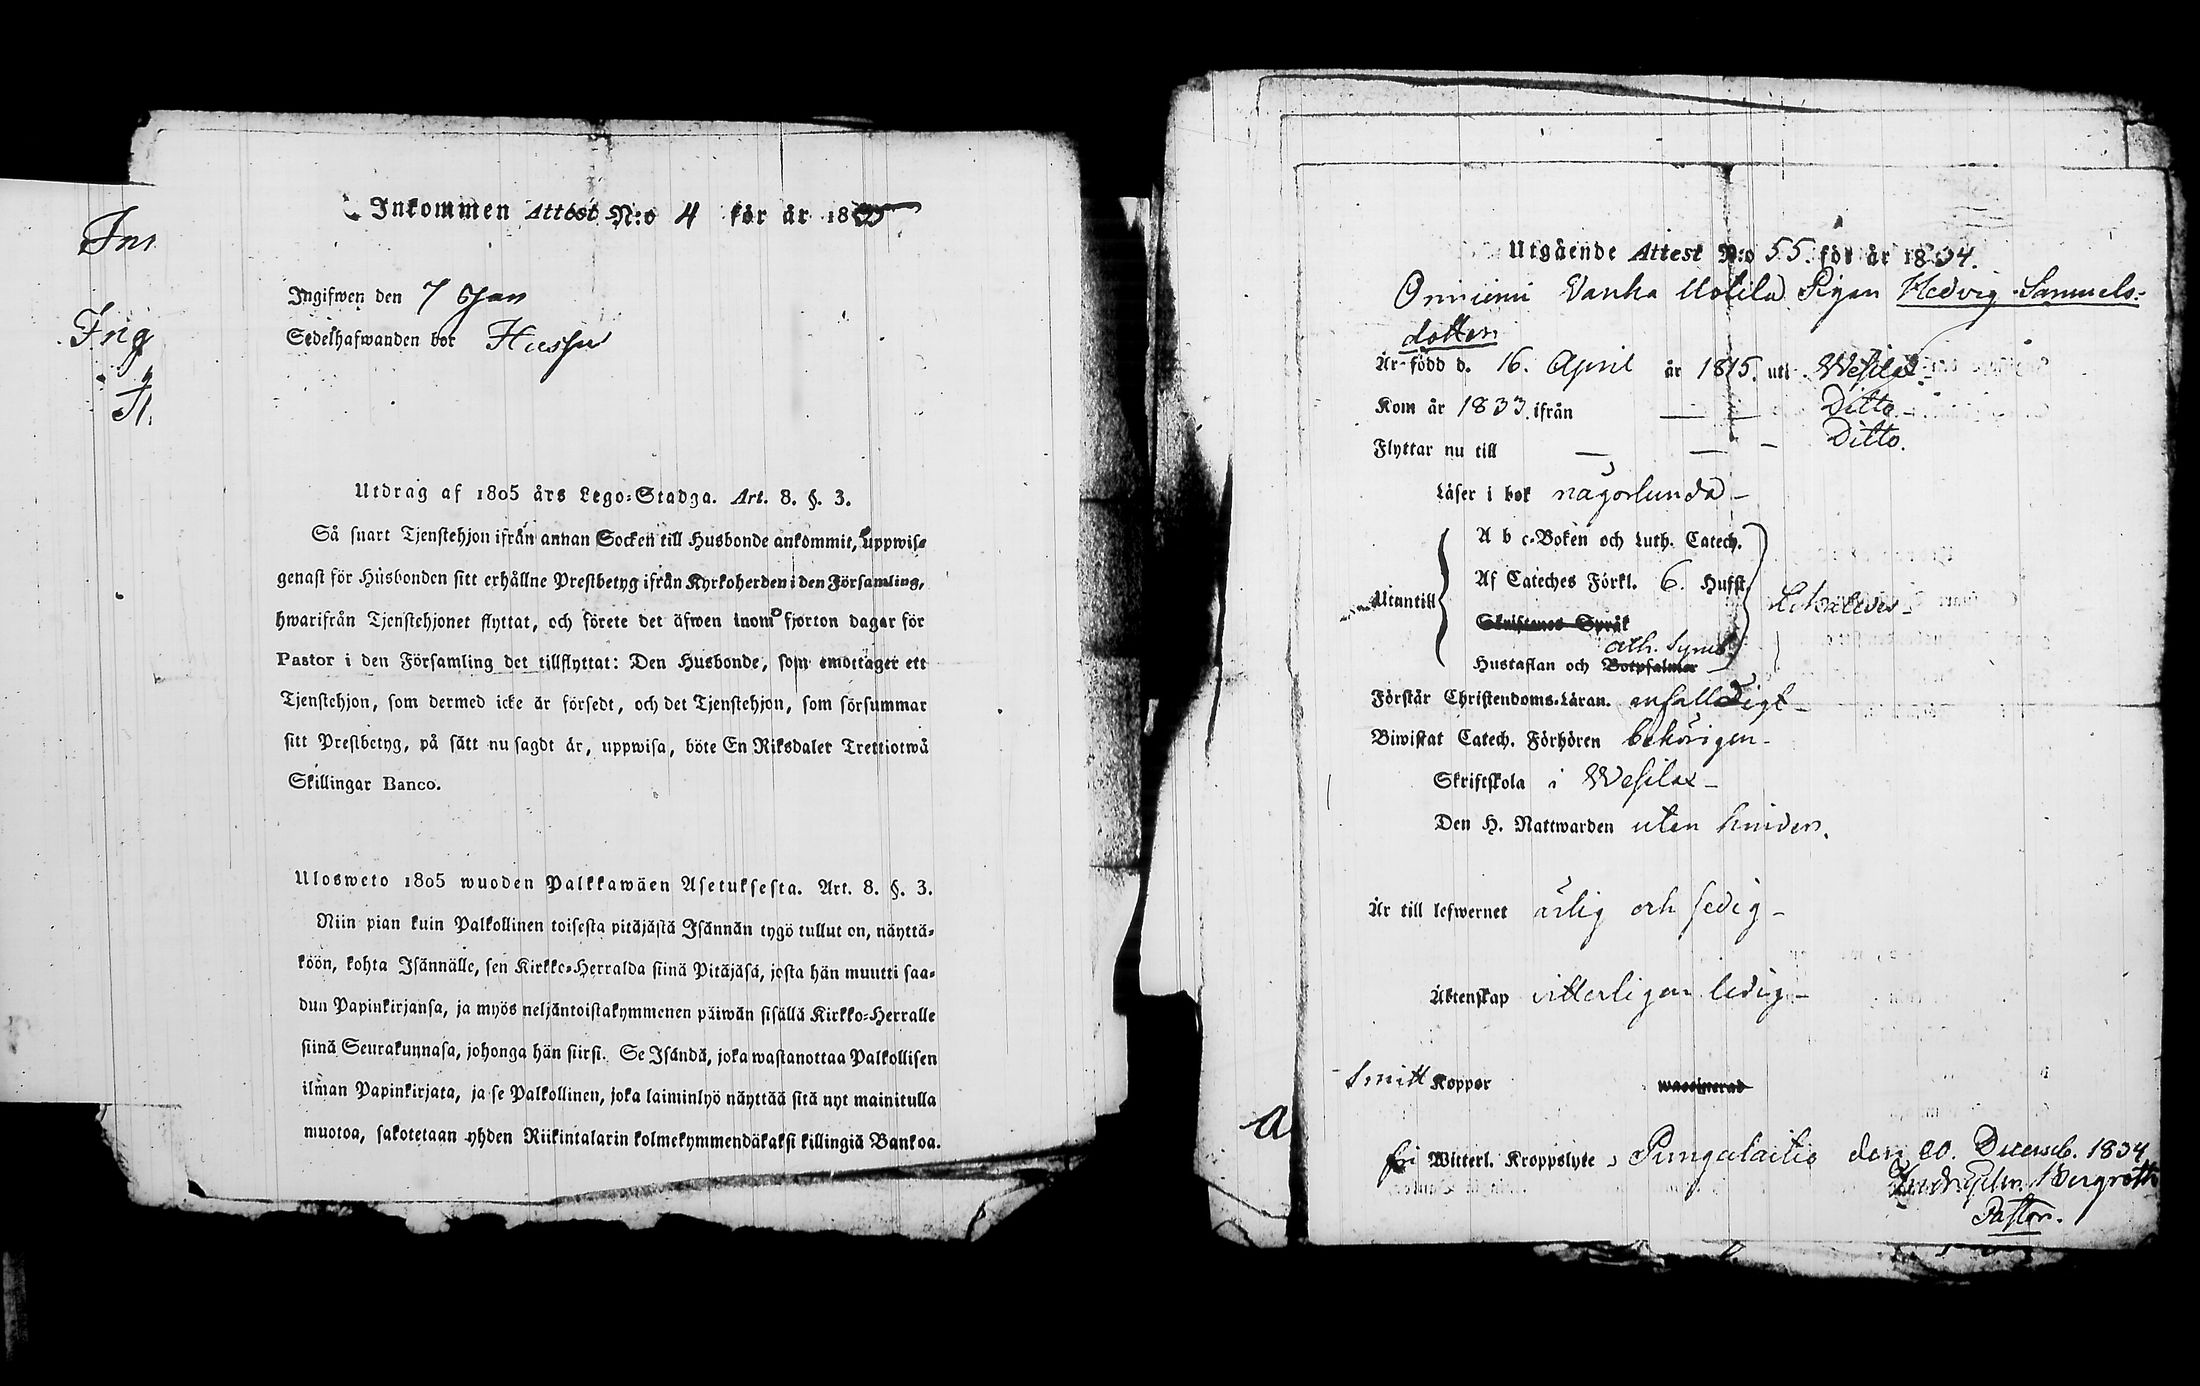 Inkommen Attest N:o 4 för år 1835
Ingifwen den 7 Jan
Sedelhafwanden bor
Utdrag af 1805 års Lego-Stadga. Art. 8. §. 3.
Så snart Tjenstehjon ifrån annan Socken till Husbonde ankommit, uppwise
genast för Husbonden sitt erhållne Prestbetyg ifrån Kyrkoherden i den Församling,
hwarifrån Tjenstehjonet flyttat, och förete det äfwen inom fjorton dagar för
Pastor i den Församling det tillflyttat: Den Husbonde, som emottager ett
Tjenstehjon, som dermed icke är försedt, och det Tjenstehjon, som försummar
sitt Prestbetyg, på sätt nu sagdt är, uppwisa, böte En Riksdaler Trettiotwå
Skillingar Banco.
Ulosweto 1805 wuoden Palkkawäen Asetuksesta. Art. 8. §. 3.
Niin pian kuin Palkollinen toisesta pitäjästä Isännän tygö tullut on, näyttä-
köön, kohta Isännälle, sen Kirkko-Herralda siinä Pitäjäsä, josta hän muutti saa-
dun Papinkirjansa, ja myös neljäntoistakymmenen päiwän sisällä Kirkko-Herralle
siinä Seurakunnasa, johonga hän siirsi. Se Isändä, joka wastanottaa Palkollisen
ilman Papinkirjata, ja se Palkollinen, joka laiminlyö näyttää sitä nyt mainitulla
muotoa, sakotetaan yhden Riikintalarin kolmekymmendäkaksi killingiä Bankoa.
Utgående Attest N:o 55. för år 1834.
Vanha Pigan Hedvig Samuels-
dotter
Är född d. 16. April år 1815. uti Wesilax
Kom år 1833. ifrån — — Ditto
Flyttar nu till — — — Ditto.
Läser i bok någorlunda —
A b c-Boken och Luth. Catech.
Af Cateches Förkl. 6. Hufst.
Utantill
Skriftenes Språk
ath. Symb.
Hustaflan och Botpsalmer
Förstår Christendoms-Läran. enfalldigt —
Biwistat Catech. Förhören behörigen —
Skriftskola i Wesilax —
Den H. Nattwarden utan hinder.
Är till lefwernet ärlig och sedig —
Äktenskap vitterligen ledig —
Smitt Koppor waccinerad
fri Witterl. Kroppslyte, Pungalaitio den 20. Decemb. 1834
Bergroth
Pastor.